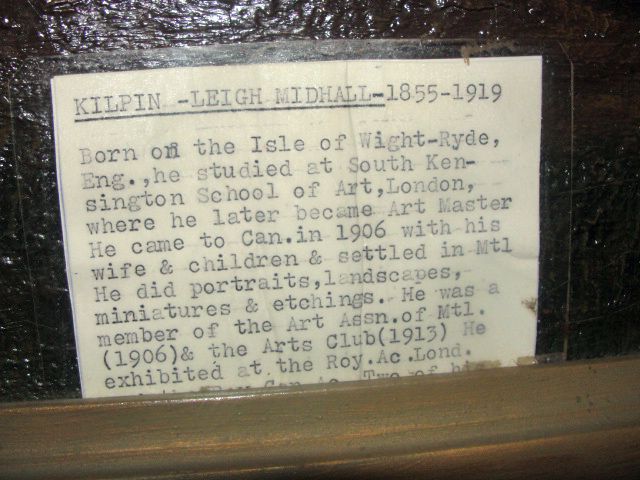 KILPIN -LEIGH MIDHALL-1855-1919
Born on the Isle of Wight-Ryde,
Eng.,he studied at South Ken-
sington School of Art,London,
where he later became Art Master
He came to Can.in 1906 with his
wife & children & settled in Mtl
He did portraits,landscapes,
miniatures & etchings. He was a
member of the Art Assn.of Mtl.
(1906)& the Arts Club(1913) He
exhibited at the Roy.Ac.Lond.
Roy Can Ac. Two of